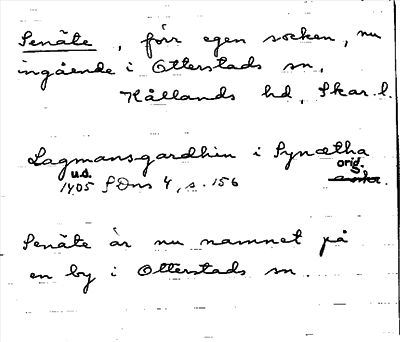 Senäte, förr egen socken, nu
ingående i Otterstads sn,
Kållands hd, Skar. l.
Lagmansgardhin i Synætha
u.d. orig.
1405 SDns 4, s. 156
Senäte är nu namnet på
en by i Otterstads sn.